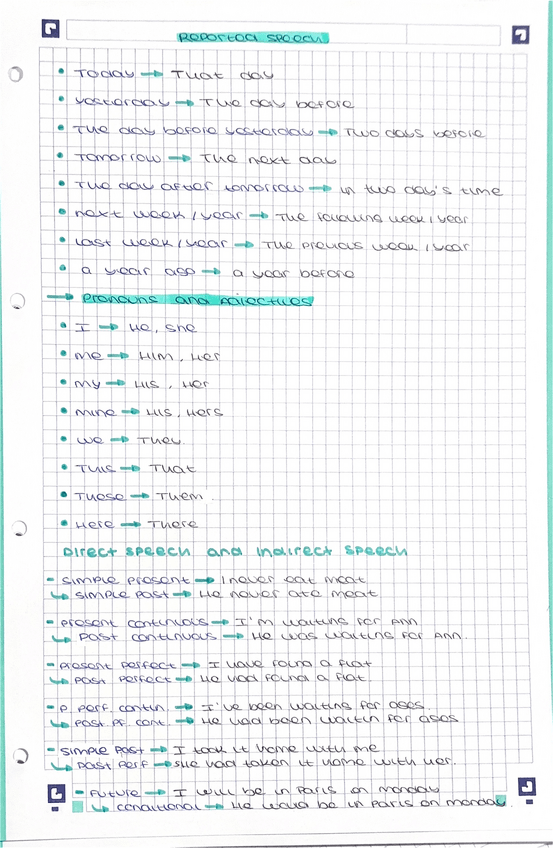 Reported speech
• Today → That day
• yesterday → The day before
• The day before yesterday → Two days before
• Tomorrow → The next day
• The day after tomorrow → in two day's time
• next week/year → The following week/year
• last week/year → The previous week/year
• a year ago → a year before
→ Pronouns and adjectives
• I → He, she
• me → Him, Her
• my → His, Her
• mine → His, Hers
• we → They
• This → That
• These → Them.
• Here → There
Direct speech and indirect speech
- simple present → I never eat meat
↳ simple past → He never ate meat
- present continuous → I'm waiting for Ann
↳ past continuous → He was waiting for Ann.
- present perfect → I have found a flat
↳ past perfect → He had found a flat.
- p perf. contin. → I've been waiting for ages.
↳ past pf. cont. → He had been waitin for ages
- simple past → I took it home with me
↳ past perf → she had taken it home with her.
- Future → I will be in Paris on monday
↳ conditional → He would be in Paris on monday.